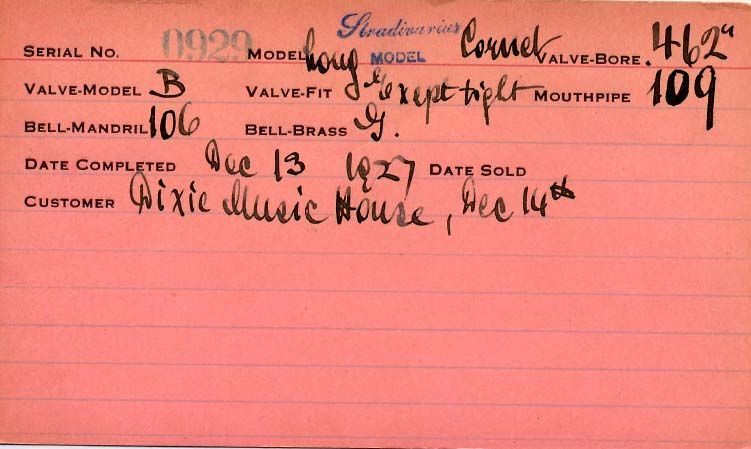 Stradivarius
SERIAL NO. 0929 MODEL Long MODEL Cornet VALVE-BORE .462"
VALVE-MODEL B VALVE-FIT G Exept tight MOUTHPIPE 109
BELL-MANDRIL 106 BELL-BRASS G.
DATE COMPLETED Dec 13 1927 DATE SOLD
CUSTOMER Dixie Music House, Dec 14th